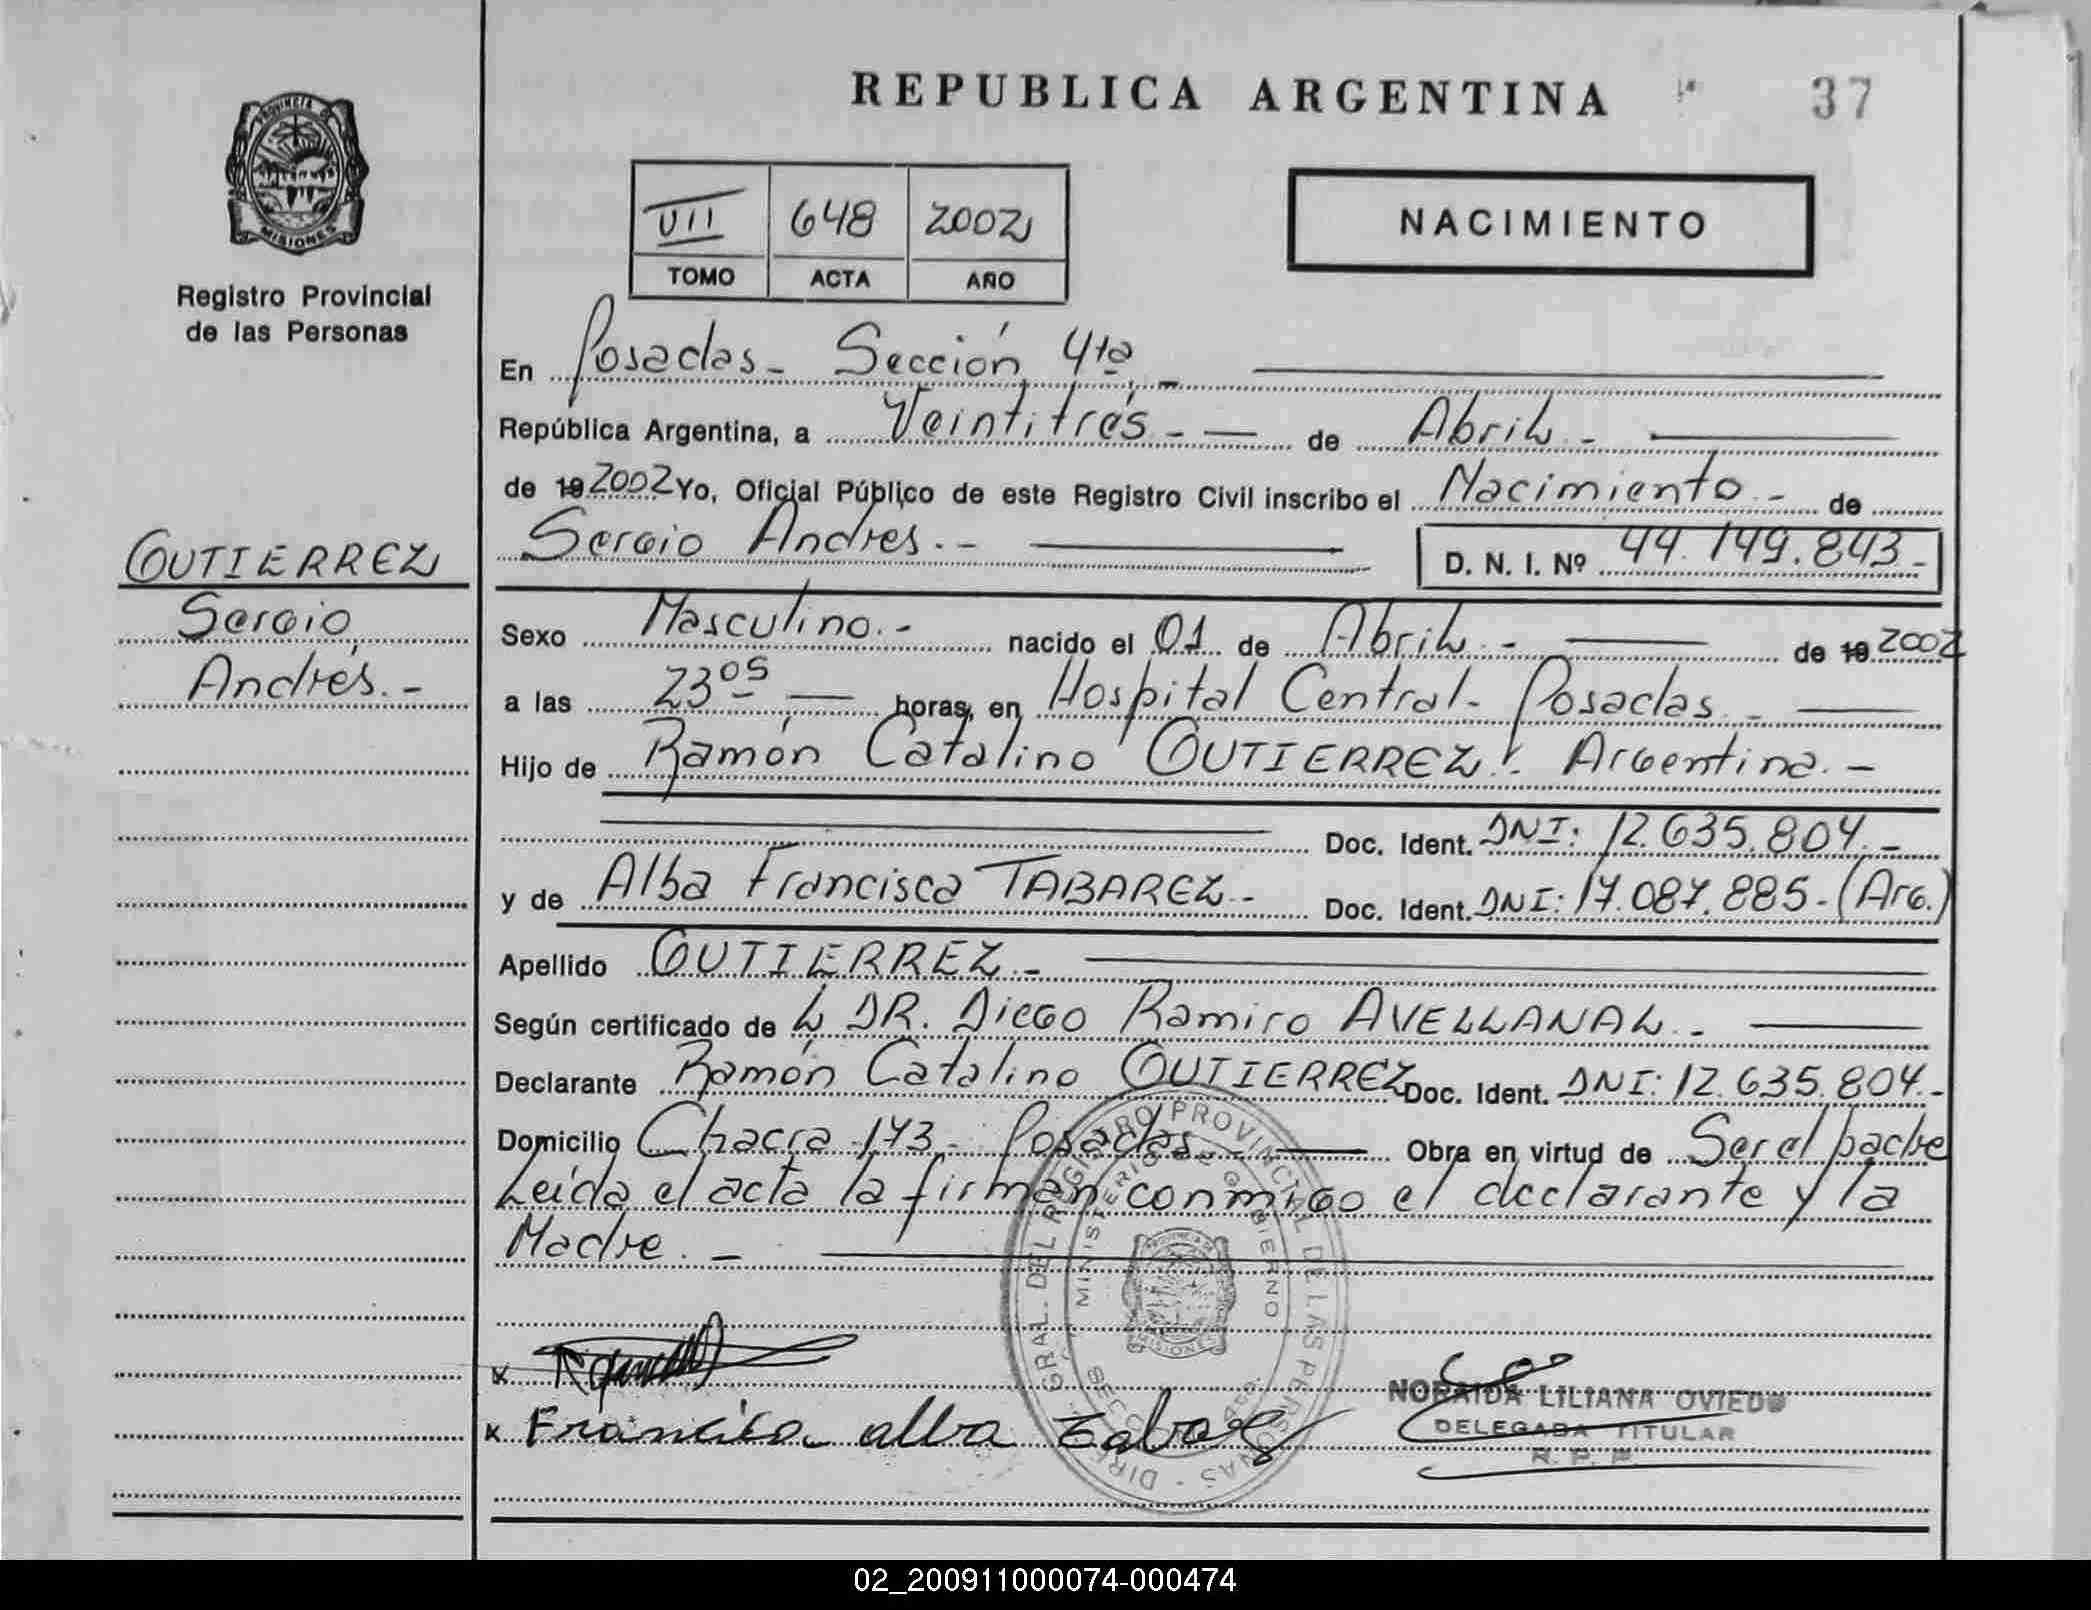 REPUBLICA ARGENTINA
37
PROVINCIA DE
MISIONES
Registro Provincial
de las Personas
VII 648 2002
TOMO ACTA AÑO
NACIMIENTO
En Posadas - Sección 4ta -
República Argentina, a Veintitrés - de Abril -
de 19 2002 Yo, Oficial Público de este Registro Civil inscribo el Nacimiento - de
Sergio Andres. -
D. N. I. Nº 44.149.843 -
GUTIERREZ
Sergio
Andrés. -
Sexo Masculino. - nacido el 01 de Abril - de 19 2002
a las 23 05 horas, en Hospital Central - Posadas. -
Hijo de Ramón Catalino GUTIERREZ. Argentina. -
Doc. Ident. DNI: 12.635.804. -
y de Alba Francisca TABAREZ. - Doc. Ident. DNI: 17.087.885 - (Arg.)
Apellido GUTIERREZ. -
Según certificado de L DR. Diego Ramiro AVELLANAL. -
Declarante Ramón Catalino GUTIERREZ Doc. Ident. DNI: 12.635.804. -
Domicilio Chacra 143 - Posadas. - Obra en virtud de Ser el padre
Leida el acta la firman conmigo el declarante y la
Madre. -
DIREC. GRAL. DEL REGISTRO PROVINCIAL DE LAS PERSONAS
MINISTERIO DE GOBIERNO
x
x Francisca alba Tabarez
NORAIDA LILIANA OVIEDO
DELEGADA TITULAR
R. P. P.
02_200911000074-000474